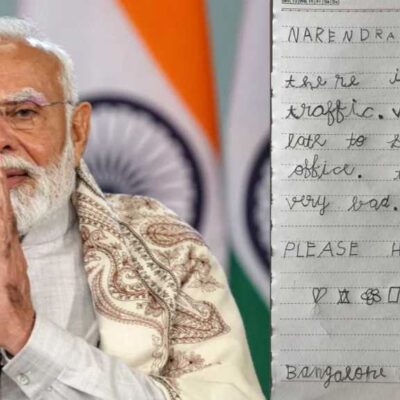 NARENDRA
there i
traffic.
late to
office.
very bad.
PLEASE H
Bangalore